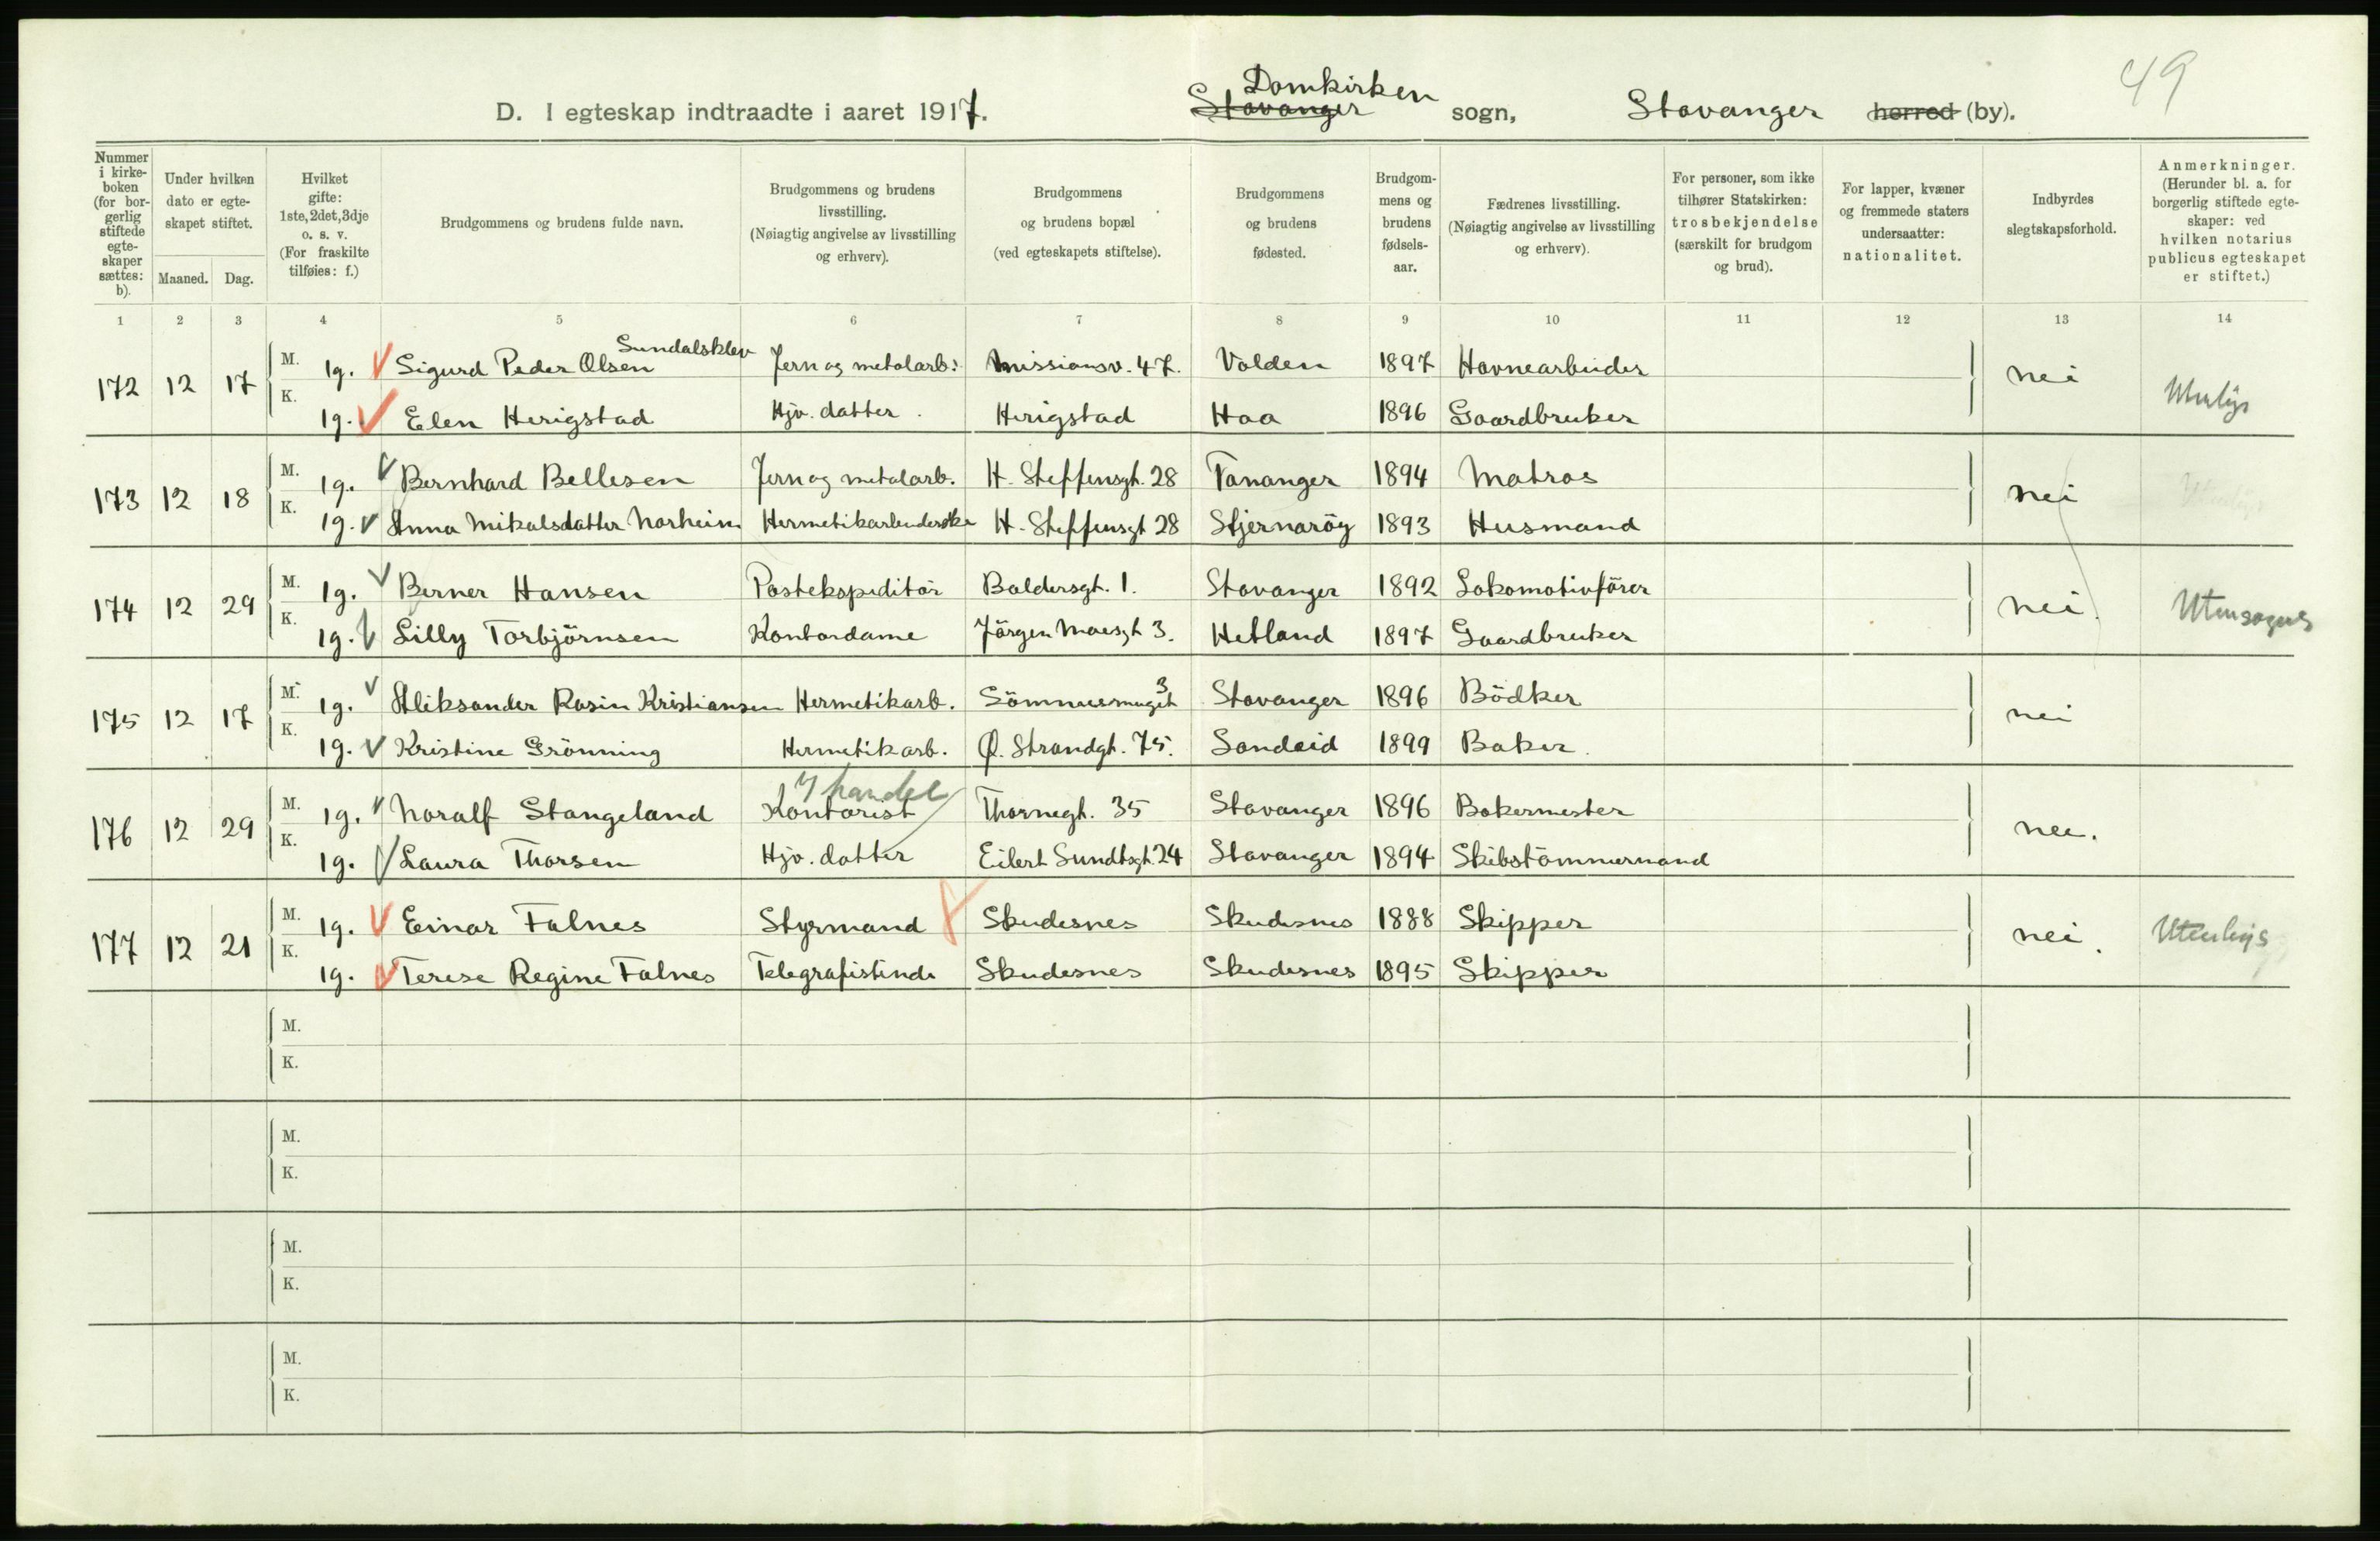 49
D. I egteskap indtraadte i aaret 1917. Stavanger Domkirken sogn, Stavanger herred (by).
Nummer i kirke- boken (for bor- gerlig stiftede egte- skaper sættes: b).
Under hvilken dato er egte- skapet stiftet.
Maaned. Dag.
Hvilket gifte: 1ste, 2det, 3dje o. s. v. (For fraskilte tilføies: f.)
Brudgommens og brudens fulde navn.
Brudgommens og brudens livsstilling. (Nøiagtig angivelse av livsstilling og erhverv).
Brudgommens og brudens bopæl (ved egteskapets stiftelse).
Brudgommens og brudens fødested.
Brudgom- mens og brudens fødsels- aar.
Fædrenes livsstilling. (Nøiagtig angivelse av livsstilling og erhverv).
For personer, som ikke tilhører Statskirken: trosbekjendelse (særskilt for brudgom og brud).
For lapper, kvæner og fremmede staters undersaatter: nationalitet.
Indbyrdes slegtskapsforhold.
Anmerkninger. (Herunder bl. a. for borgerlig stiftede egte- skaper: ved hvilken notarius publicus egteskapet er stiftet.)
1 2 3 4 5 6 7 8 9 10 11 12 13 14
172 12 17 M. 1g. Sigurd Peder Olsen Sundalsklev Jern og metalarb: Missionsv. 47. Volden 1897 Havnearbeider nei Utenbys
K. 1g. Elen Herigstad Hjv. datter. Herigstad Haa 1896 Gaardbruker
173 12 18 M. 1g. Bernhard Bellesen Jern og metalarb. H. Steffensgt. 28 Tananger 1894 Matros nei
K. 1g. Anna Mikalsdatter Norheim Hermetikarbeiderske H. Steffensgt 28 Stjernaröy 1893 Husmand
174 12 29 M. 1g. Berner Hansen Postekspeditör Baldersgt. 1. Stavanger 1892 Lokomotivförer nei. Utensogns
K. 1g. Lilly Torbjörnsen Kontordame Jörgen Moesgt 3. Hetland 1897 Gaardbruker
175 12 17 M. 1g. Aleksander Rosin Kristiansen Hermetikarb. 3 Stavanger 1896 Bödker nei
K. 1g. Kristine Grönning Hermetikarb. Ø. Strandgt. 75. Sandeid 1899 Baker.
176 12 29 M. 1g. Noralf Stangeland Kontorist handel Thornegt. 35 Stavanger 1896 Bakermester nei.
K. 1g. Laura Thorsen Hjv. datter Eilert Sundtsgt. 24 Stavanger 1894 Skibstömmermand
177 12 21 M. 1g. Einar Falnes Styrmand Skudesnes Skudesnes 1888 Skipper nei. Utenbys
K. 1g. Terese Regine Falnes Telegrafistinde Skudesnes Skudesnes 1895 Skipper
M.
K.
M.
K.
M.
K.
M.
K.